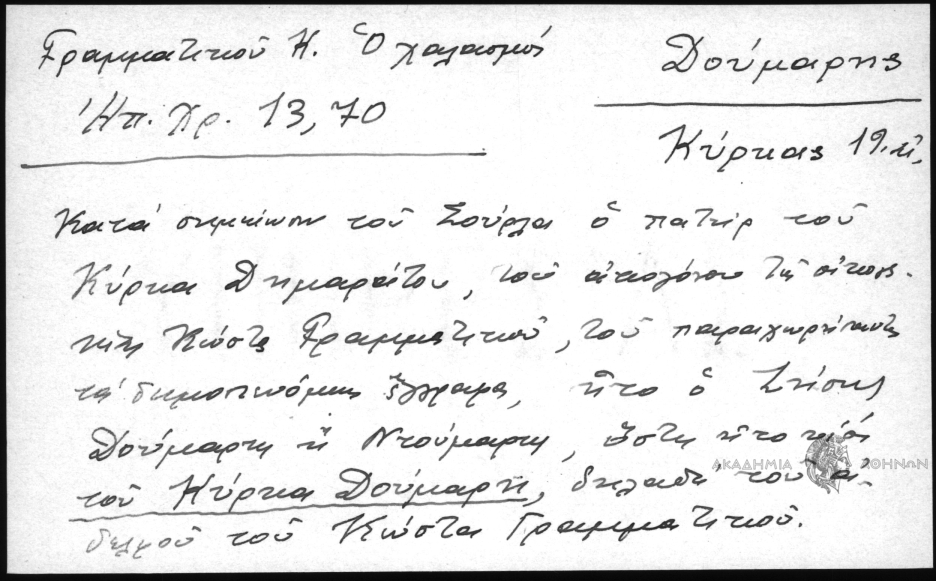 Γραμματικού Κ. Ὁ χαλασμός
Ἠπ. Χρ. 13, 70
Δούμαρης
Κύρκας 19. αἰ.
Κατά σημείωσιν τοῦ Σούρλα ὁ πατήρ τοῦ
Κύρκα Δημαράτου, τοῦ ἀπογόνου τῆς οἰκογε-
νείας Κώστα Γραμματικοῦ, τοῦ παραχωρήσαντος
τά δημοσιευόμενα ἔγγραφα, ἦτο ὁ
Δούμαρης ἤ Ντούμαρης, ὅστις ἦτο υἱός
τοῦ Κύρκα Δούμαρη, δηλαδή τοῦ ἀ-
δελφοῦ τοῦ Κώστα Γραμματικοῦ.
ΑΚΑΔΗΜΙΑ ΑΘΗΝΩΝ